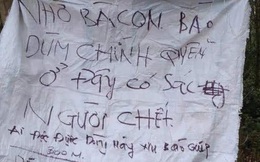 NHỜ BÀ CON BÁO
DÙM CHÍNH QUYỀN
Ở Đây có Sác
NGƯỜI CHẾT
Ai Đọc Được Dòng Này xin Báo Giúp
300M